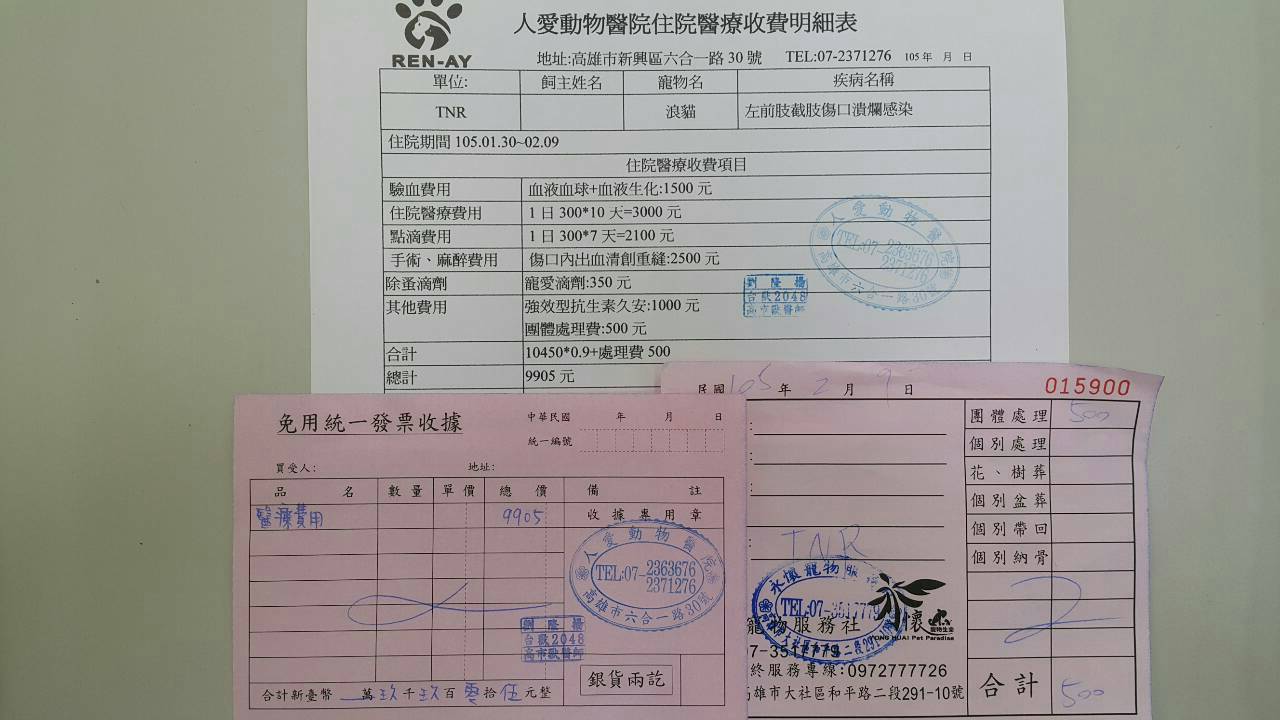 人愛動物醫院住院醫療收費明細表
REN-AY
地址:高雄市新興區六合一路 30 號 TEL:07-2371276 105 年 月 日
單位: 飼主姓名 寵物名 疾病名稱
TNR 浪貓 左前肢截肢傷口潰爛感染
住院期間 105.01.30~02.09
住院醫療收費項目
驗血費用 血液血球+血液生化:1500 元
住院醫療費用 1 日 300*10 天=3000 元
點滴費用 1 日 300*7 天=2100 元
手術、麻醉費用 傷口內出血清創重縫:2500 元
除蚤滴劑 寵愛滴劑:350 元
其他費用 強效型抗生素久安:1000 元
團體處理費:500 元
合計 10450*0.9+處理費 500
總計 9905 元
人愛動物醫院
TEL:07-2363676
2371276
高雄市六合一路30號
劉隆揚
台獸2048
高市獸醫師
免用統一發票收據
中華民國 年 月 日
統一編號
買受人: 地址:
品名 數量 單價 總價 備註
醫療費用 9905 收據專用章
人愛動物醫院
TEL:07-2363676
2371276
高雄市六合一路30號
劉隆揚
台獸2048
高市獸醫師
銀貨兩訖
合計新臺幣 萬玖千玖百零拾伍元整
民國105年2月9日 015900
團體處理 500
個別處理
花、樹葬
個別盆葬
個別帶回
個別納骨
TNR
永懷寵物服
TEL:07-3517779
懷
寵物服務社 YONG HUAI Pet Paradise
7-3517779
終服務專線:0972777726
高雄市大社區和平路二段291-10號
合計 500